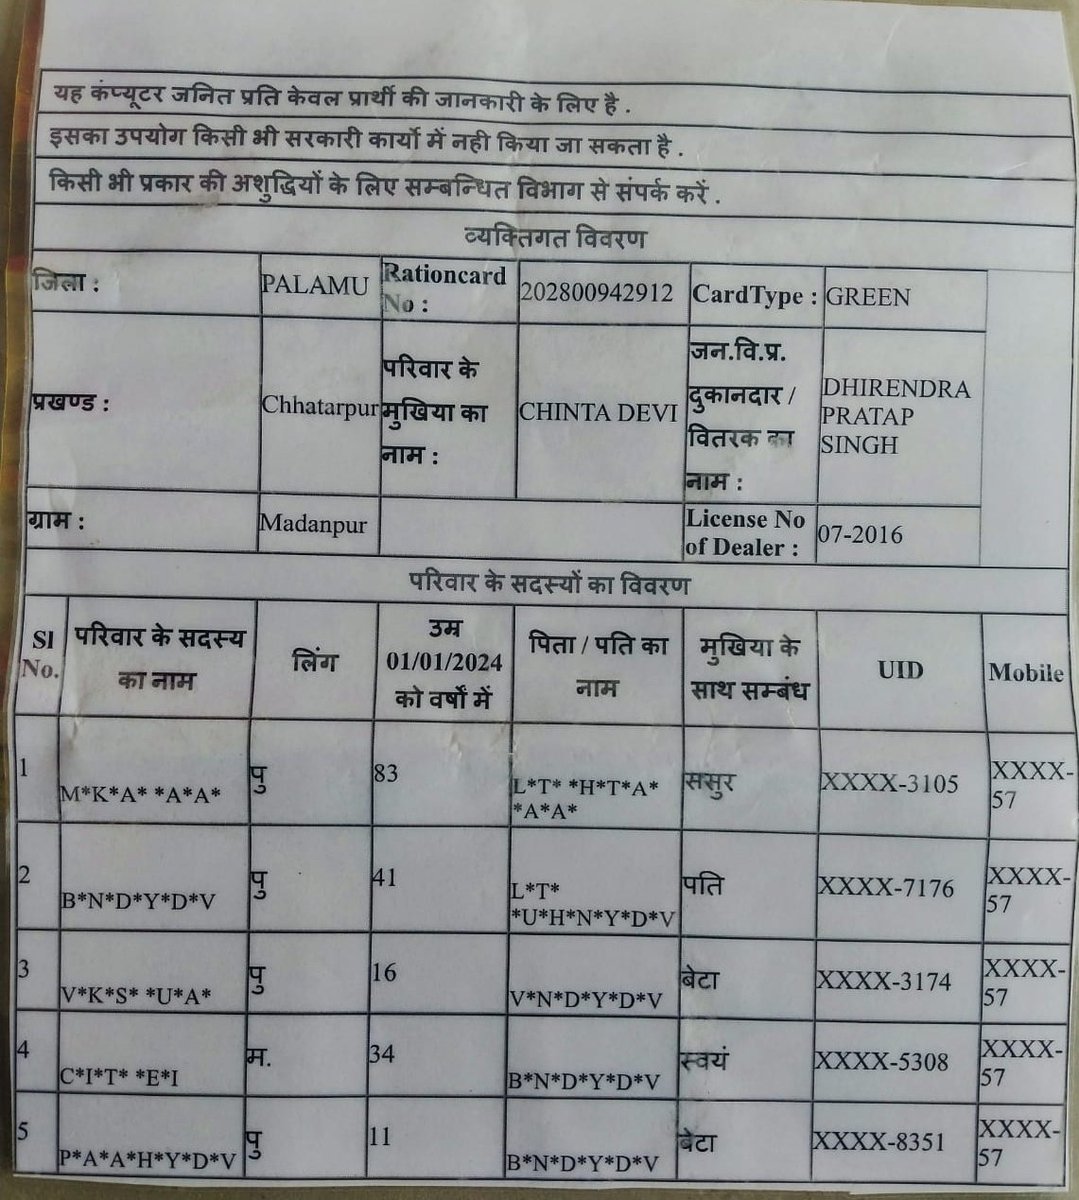 यह कंप्यूटर जनित प्रति केवल प्रार्थी की जानकारी के लिए है .
इसका उपयोग किसी भी सरकारी कार्यो में नही किया जा सकता है .
किसी भी प्रकार की अशुद्धियों के लिए सम्बन्धित विभाग से संपर्क करें .
व्यक्तिगत विवरण
जिला : PALAMU Rationcard No : 202800942912 CardType : GREEN
प्रखण्ड : Chhatarpur परिवार के मुखिया का नाम : CHINTA DEVI जन.वि.प्र. दुकानदार / वितरक का नाम : DHIRENDRA PRATAP SINGH
ग्राम : Madanpur License No of Dealer : 07-2016
परिवार के सदस्यों का विवरण
Sl No. परिवार के सदस्य का नाम लिंग उम्र 01/01/2024 को वर्षों में पिता / पति का नाम मुखिया के साथ सम्बंध UID Mobile
1 M*K*A* *A*A* पु 83 L*T* *H*T*A* *A*A* ससुर XXXX-3105 XXXX-57
2 B*N*D*Y*D*V पु 41 L*T* *U*H*N*Y*D*V पति XXXX-7176 XXXX-57
3 V*K*S* *U*A* पु 16 V*N*D*Y*D*V बेटा XXXX-3174 XXXX-57
4 C*I*T* *E*I म. 34 B*N*D*Y*D*V स्वयं XXXX-5308 XXXX-57
5 P*A*A*H*Y*D*V पु 11 B*N*D*Y*D*V बेटा XXXX-8351 XXXX-57